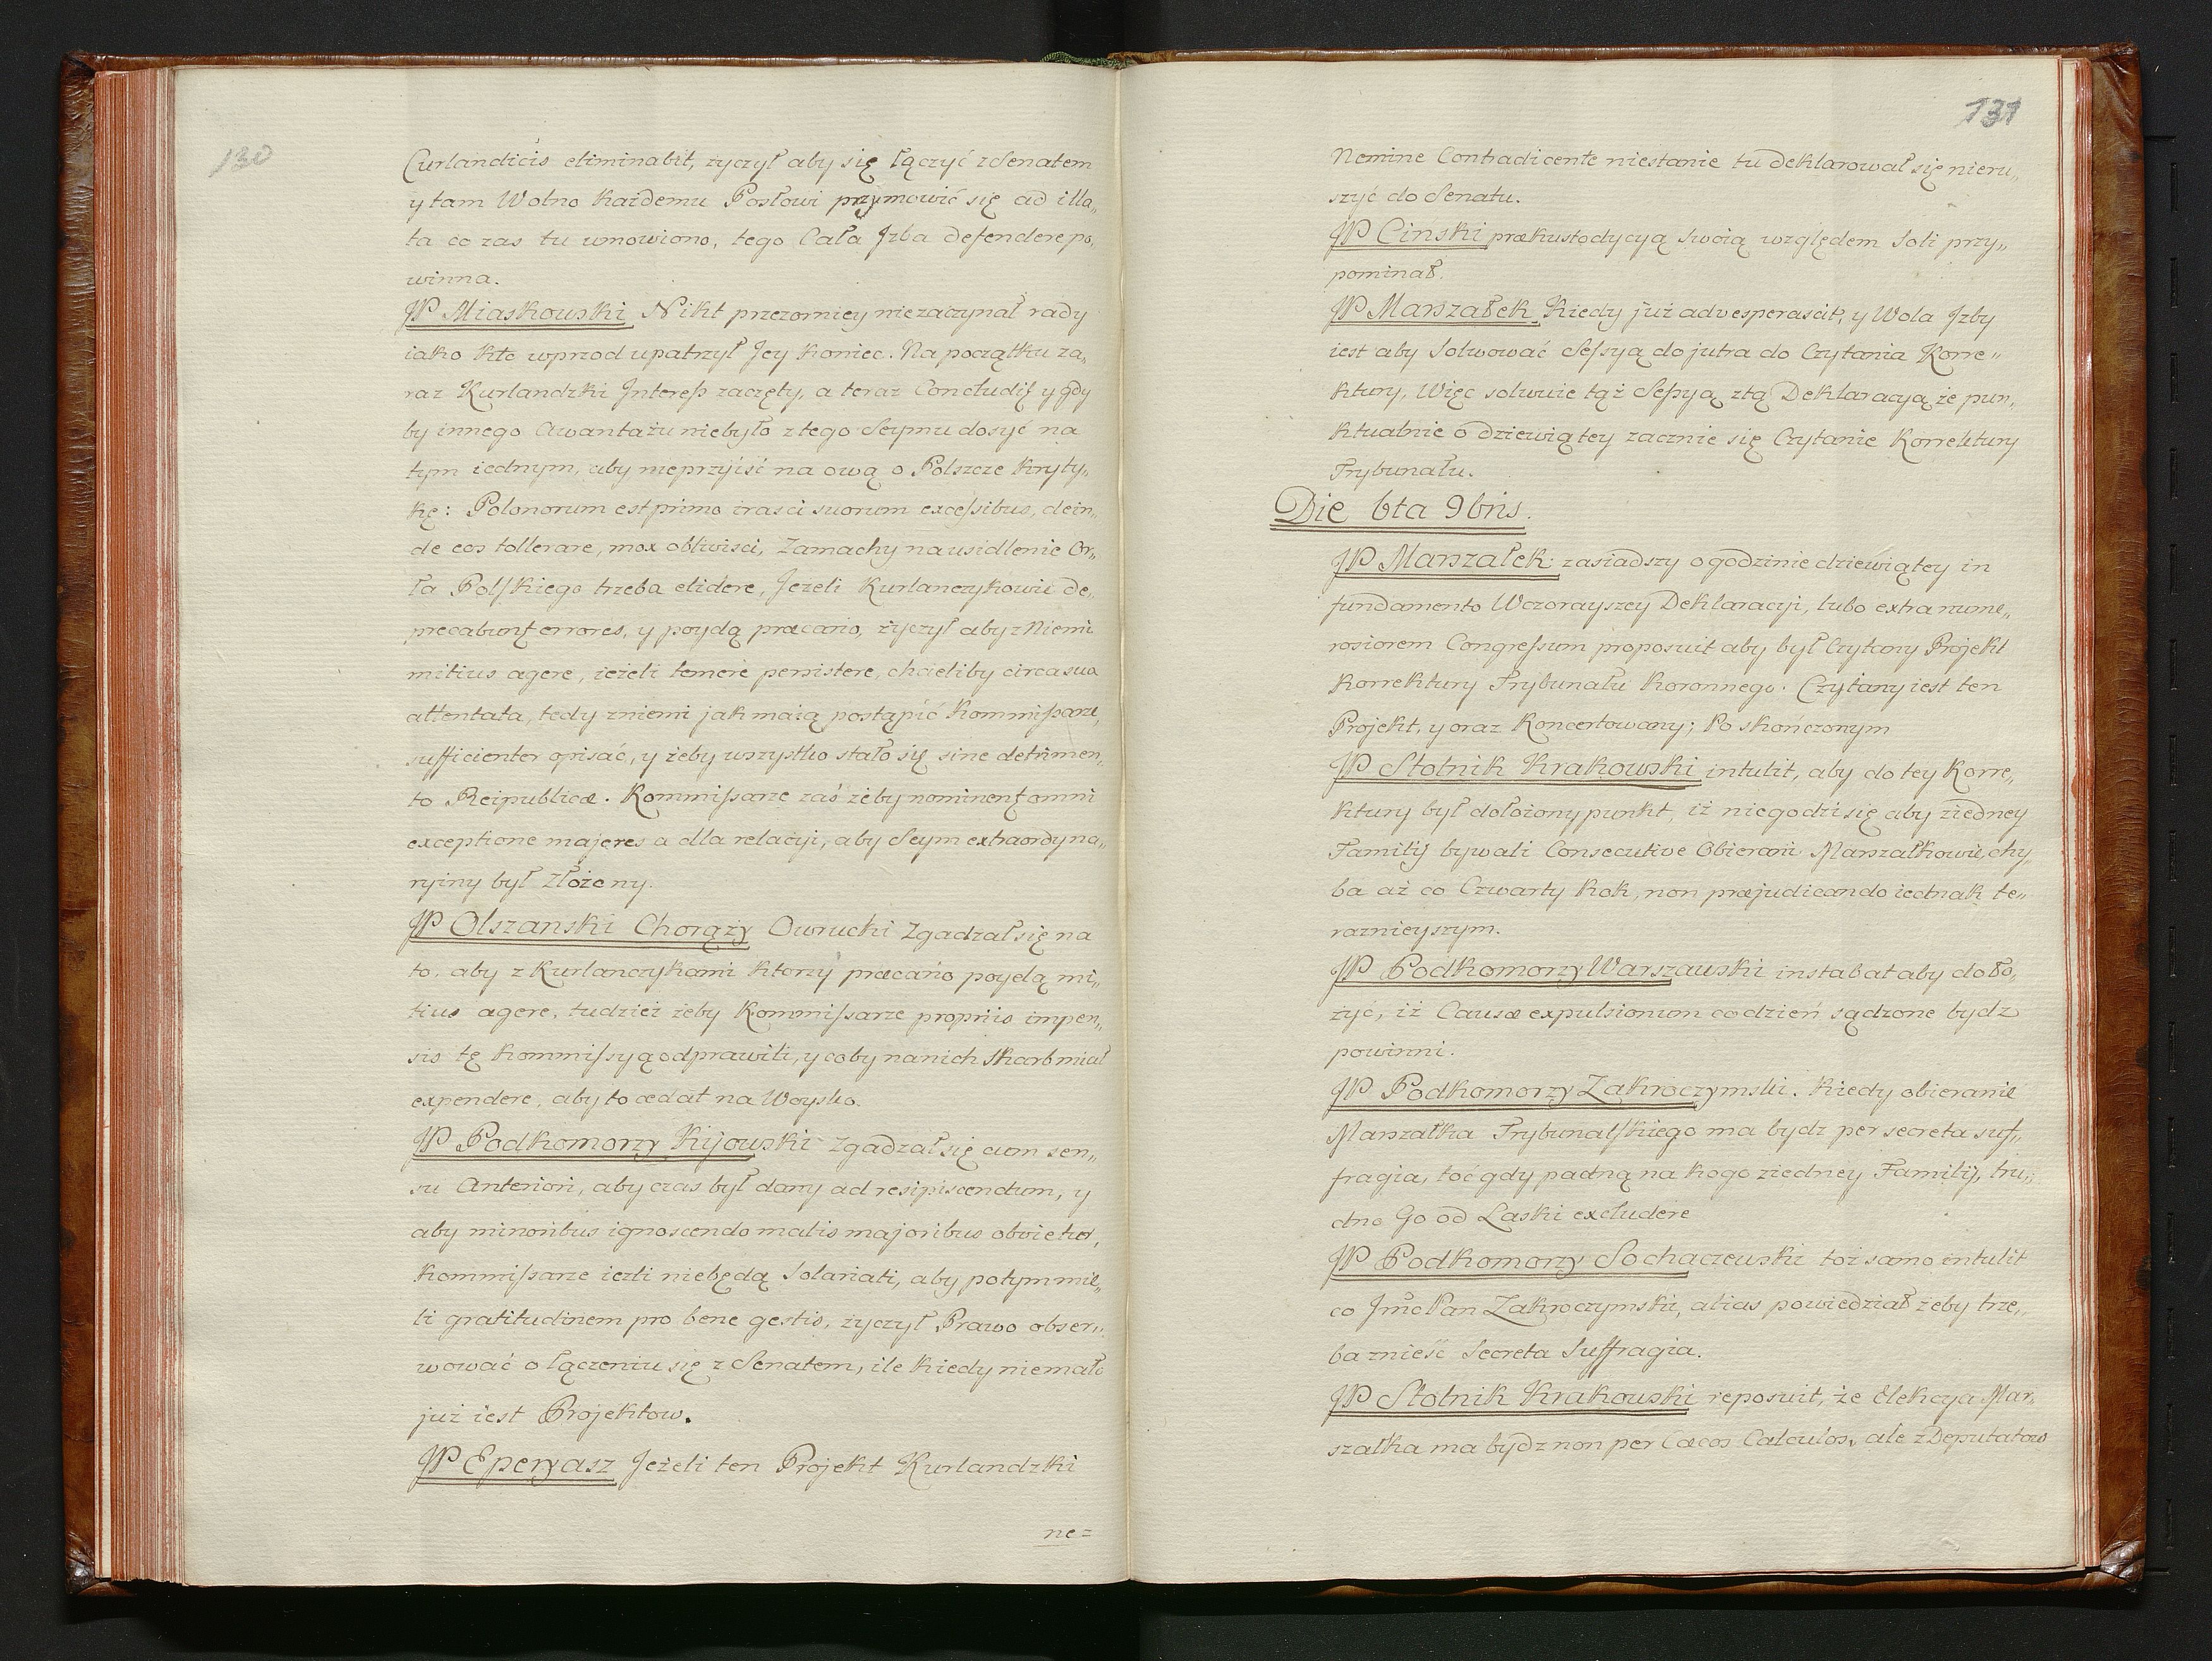 130
Curlandicis eliminabit, życzył aby się łączyć z Senatem
y tam Wolno każdemu Posłowi przymowić się ad illa„
ta co zas tu umowiono, tego Cała Jzba defendere po„
winna.
JP Miaskowski Nikt przezorniey niezaczynał rady
iako kto wprzod upatrzył Jey koniec. Na początku za„
raz Kurlandzki Jnteress zaczęty, a teraz Concludit y gdy
by innego Awantażu niebyło z tego Seymu dosyć na
tym iednym, aby nieprzyiść na ową o Polszcze kryty„
kę: Polonorum est primo irasci suorum excessibus, dein„
de eos tollerare, mox oblivisci, Zamachy na usidlenie Or„
ła Polskiego trzeba elidere, Jeżeli Kurlanczykowie de„
precabunt errores, y poydą præcario, życzył aby z Niemi
mitius agere, ieżeli temere persistere, chcieliby circa sua
attentata, tedy z niemi jak maią postąpić Kommissarze,
sufficienter opisać, y żeby wszystko stało się sine detrimen„
to Reipublicæ. Kommissarze zaś żeby nominent omni
exceptione majores a dla relacyi, aby Seym extraordyna„
ryiny był złożony.
JP Olszanski Chorąży Owrucki Zgadzał się na
to, aby z Kurlanczykami ktorzy præcario poydą mi„
tius agere, tudzież żeby Kommissarze propriis impen„
sis tę Kommissyą odprawili, y coby na nich Skarb miał
expendere, aby to cedat na Woysko.
JP Podkomorzy Kijowski Zgadzał się cum sen„
su Anteriori, aby czas był dany ad resipiscendum, y
aby minoribus ignoscendo malis majoribus obvietur,
Kommissarze iezli niebędą Salariati, aby potym mie„
li gratitudinem pro bene gestis, życzył Prawo obser„
wować o łączeniu się z Senatem, ile kiedy niemało
już iest Projektow.
JP Eperyasz Jeżeli ten Projekt Kurlandzki
ne=
131
Nemine Contradicente niestanie tu deklarował się nieru„
szyć do Senatu.
JP Cinski prækustodycyą swoią względem Soli przy„
pominał.
JP Marszałek, Kiedy już advesperascit, y Wola Jzby
iest aby Solwować Sessyą do jutra do Czytania Korre„
ktury, Więc solwuie tąż Sessyą z tą Deklaracyą że pun„
ktualnie o dziewiątey zacznie się Czytanie Korrektury
Trybunału.
Die 6ta 9bris.
JP Marszałek: zasiadszy o godzinie dziewiątey in
fundamento Wczorayszey Deklaracyi, lubo extra nume„
rosiorem Congressum proposuit aby był Czytany Projekt
Korrektury Trybunału Koronnego. Czytany iest ten
Projekt, y oraz Koncertowany; Po skończonym
JP Stolnik Krakowski intulit, aby do tey Korre„
ktury był dołożony punkt, iż niegodzi się aby ziedney
Familij bywali Consecutive Obierani Marszałkowie, chy„
ba aż co Czwarty Rok, non præjudicando iednak te„
raznieyszym.
JP Podkomorzy Warszawski instabat aby doło„
żyć, iż Causæ expulsionum co dzień sądzone bydz
powinni.
JP Podkomorzy Zakroczymski. Kiedy obieranie
Marszałka Trybunalskiego ma bydz per secreta suf„
fragia, toć gdy padną na kogo ziedney Familij, tru„
dno Go od Laski excludere
JP Podkomorzy Sochaczewski toż samo intulit
co Jmc Pan Zakroczymski, alias powiedział żeby trze„
ba znieść Secreta Suffragia.
JP Stolnik Krakowski reposuit, że Elekcya Mar„
szałka ma bydz non per Cæcos Calculos, ale z Deputatow